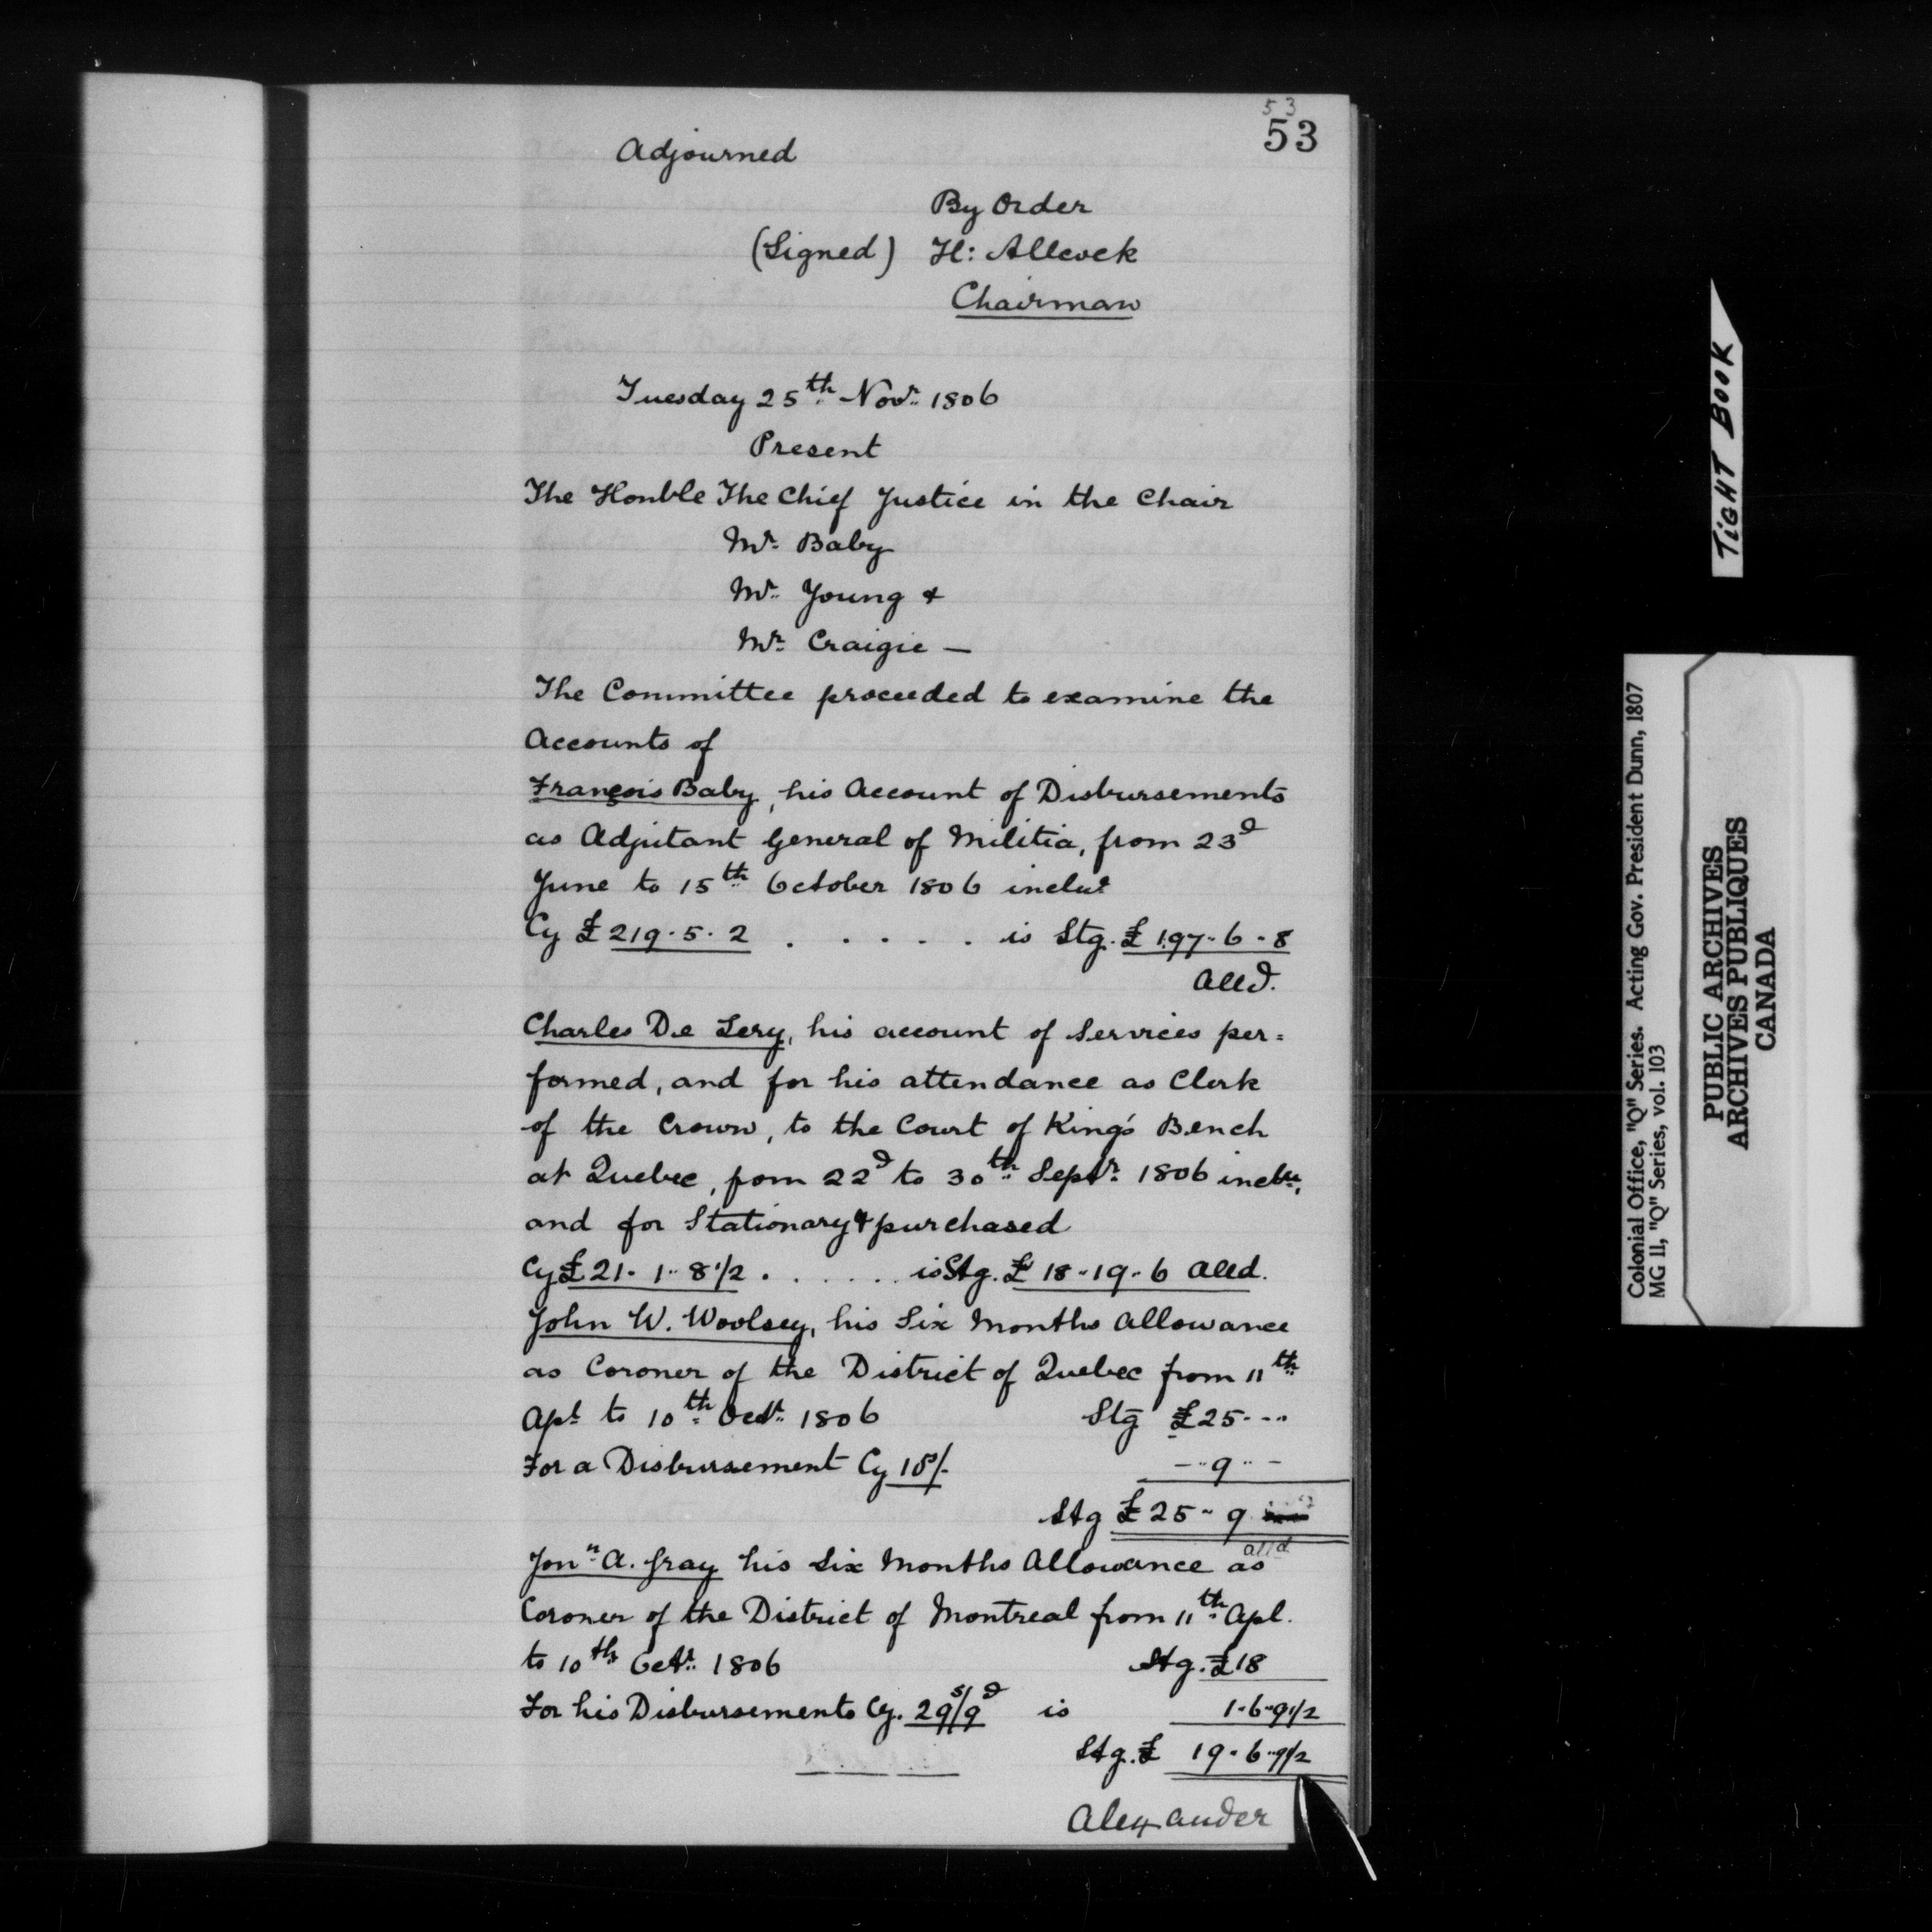 53
53
Adjourned
By Order
(Signed) H: Allcock
Chairman
Tuesday 25th Novr. 1806
Present
The Honble The Chief Justice in the Chair
Mr. Baby
Mr. Young &
Mr. Craigie —
The Committee proceeded to examine the
Accounts of
François Baby, his Account of Disbursements
as Adjutant General of Militia, from 23d
June to 15th October 1806 inclue
Cy £ 219. 5. 2 . . . . . is Stg. £ 197-6-8
Alld.
Charles De Lery, his account of Services per=
formed, and for his attendance as Clerk
of the Crown, to the Court of King's Bench
at Quebec, from 22d to 30th Septr. 1806 inclue,
and for Stationary & purchased
Cy £ 21. 1. 8 1/2 . . . . . . is Stg. £ 18-19-6 Alld.
John W. Woolsey, his Six Months Allowance
as Coroner of the District of Quebec from 11th
Apl. to 10th Octr. 1806 Stg £25...
For a Disbursement Cy 10/- - 9 -
Stg £ 25 - 9
alld
Jonn. A. Gray his Six Months Allowance as
Coroner of the District of Montreal from 11th Apl.
to 10th Octr. 1806 Stg. £18
For his Disbursements Cy. 29s/9d is 1-6-9 1/2
Stg. £ 19-6-9 1/2
Alexander
TIGHT BOOK
Colonial Office, "Q" Series. Acting Gov. President Dunn, 1807
MG 11, "Q" Series, vol. 103
PUBLIC ARCHIVES
ARCHIVES PUBLIQUES
CANADA